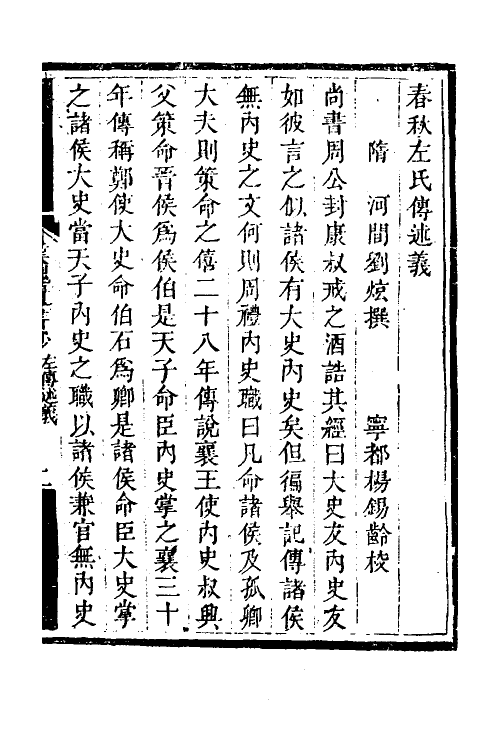 春秋左氏傳述義
隋　河間劉炫撰　寧都楊錫齡校
尚書周公封康叔戒之酒誥其經曰大史友內史友
如彼言之似諸侯有大史內史矣但徧舉記傳諸侯
無內史之文何則周禮內史職曰凡命諸侯及孤卿
大夫則策命之僖二十八年傳說襄王使內史叔興
父策命晉侯爲侯伯是天子命臣內史掌之襄三十
年傳稱鄭使大史命伯石爲卿是諸侯命臣大史掌
之諸侯大史當天子內史之職以諸侯兼官無內史
左傳述義